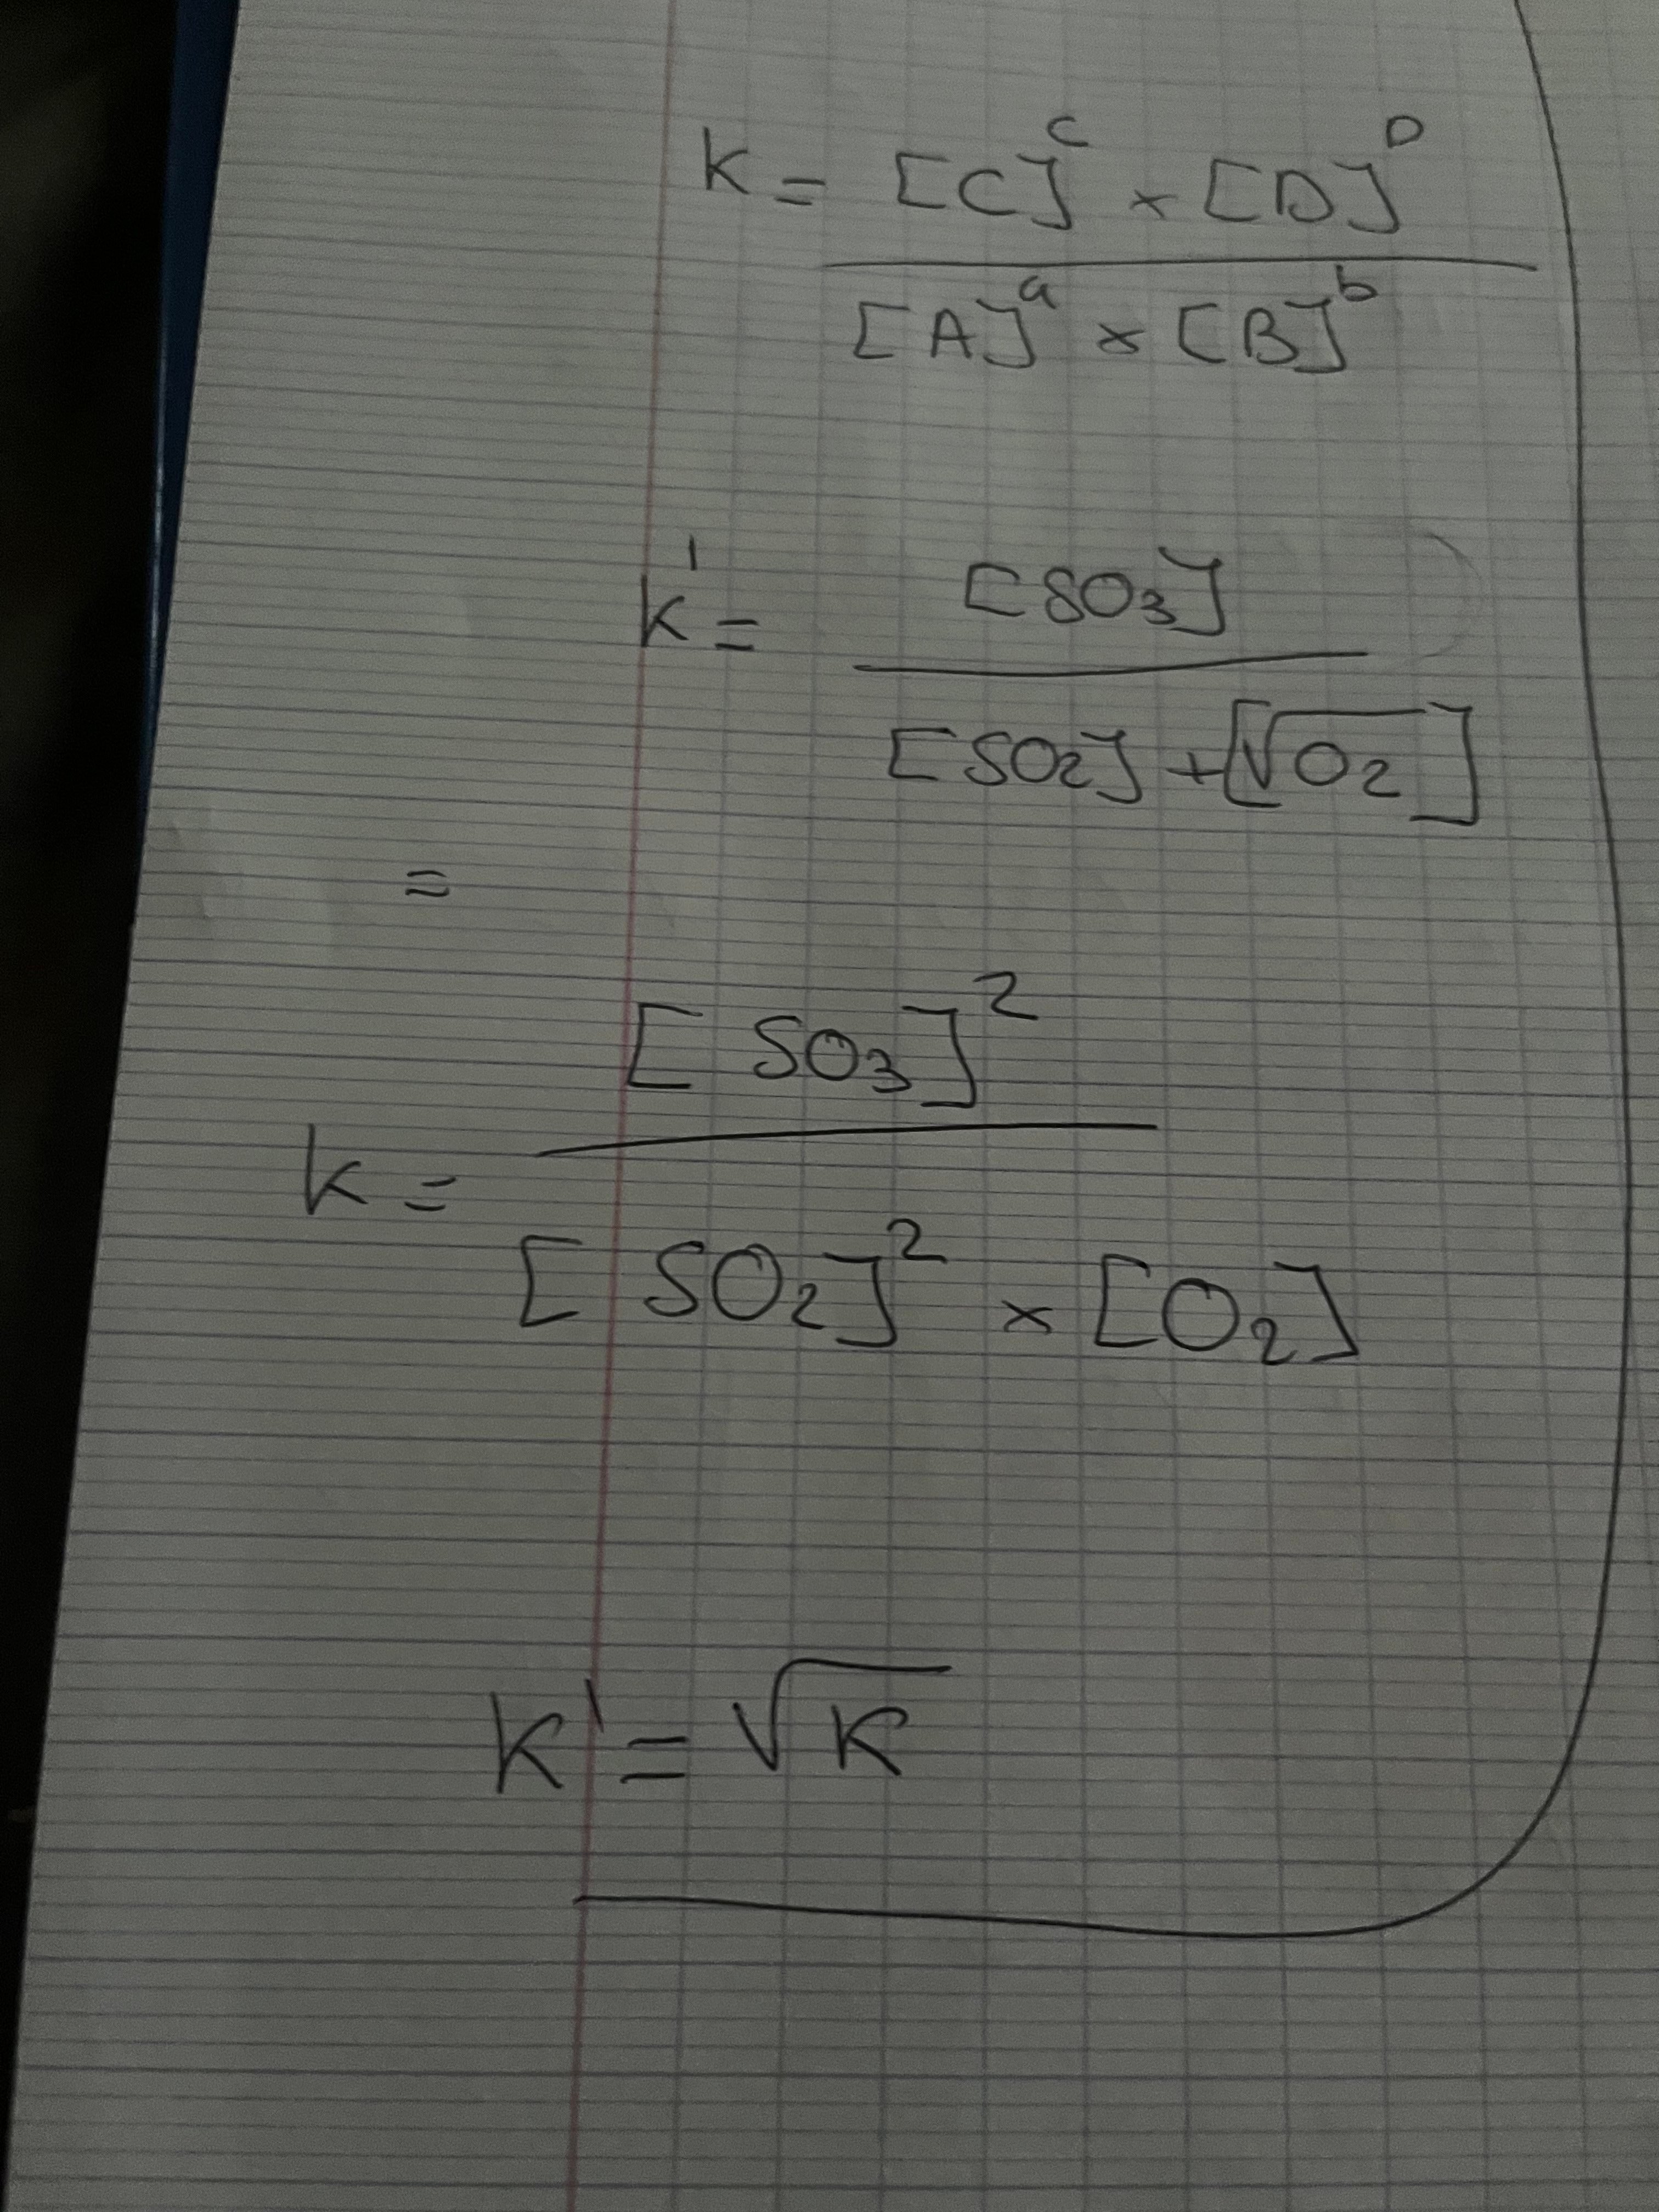 K = [C]^c × [D]^D
[A]^a × [B]^b
K' = [SO₃]
[SO₂] + [√O₂]
=
[SO₃]²
K =
[SO₂]² × [O₂]
K' = √K